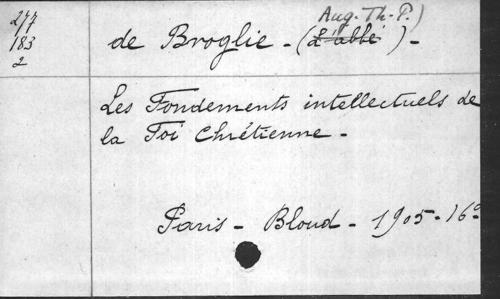 277
183
2
Aug. Th. P.)
de Broglie - (L'abbé) -
Les Fondements intellectuels de
la Foi Chrétienne -
Paris - Bloud - 1905 - 16º